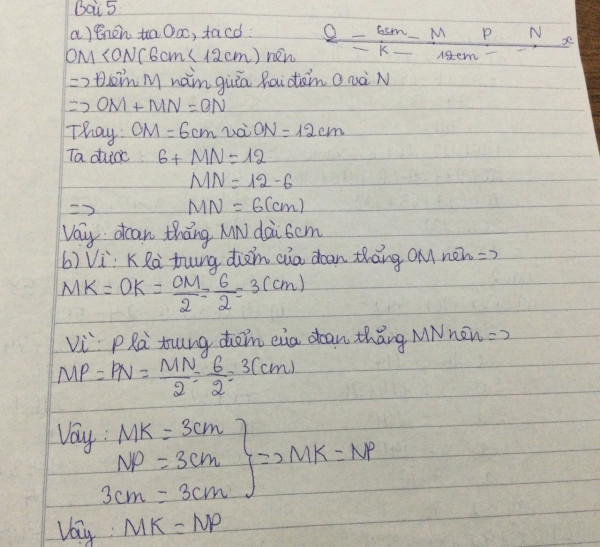 Bài 5
a) Trên tia Ox, ta có:
O 6cm M P N x
K 12cm
OM < ON (6cm < 12cm) nên
=> Điểm M nằm giữa hai điểm O và N
=> OM + MN = ON
Thay: OM = 6cm và ON = 12cm
Ta được: 6 + MN = 12
MN = 12 - 6
=> MN = 6 (cm)
Vậy: đoạn thẳng MN dài 6cm
b) Vì: K là trung điểm của đoạn thẳng OM nên =>
MK = OK = OM/2 = 6/2 = 3 (cm)
Vì: P là trung điểm của đoạn thẳng MN nên =>
MP = PN = MN/2 = 6/2 = 3 (cm)
Vậy: MK = 3cm
NP = 3cm } => MK = NP
3cm = 3cm
Vậy: MK = NP